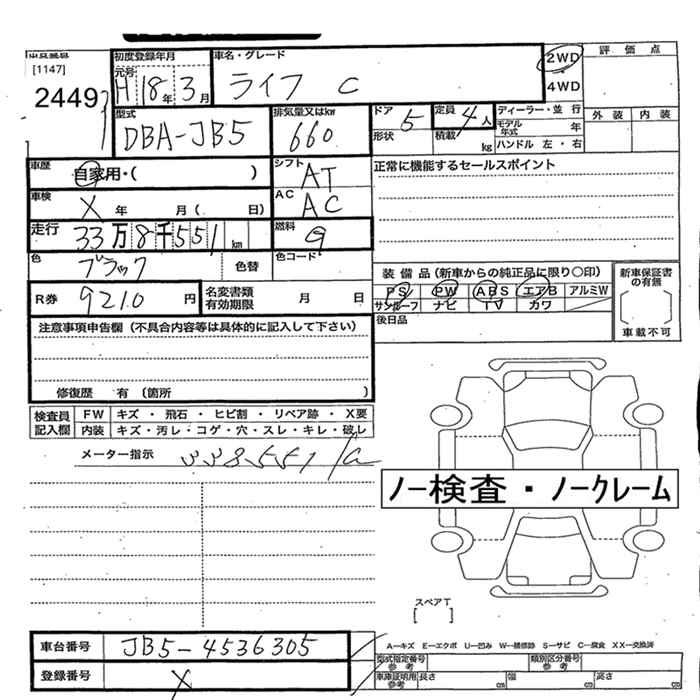 [1147]
2449
初度登録年月
元号
H 18年 3月
車名・グレード
ライフ C
2WD
4WD
評価点
外装 内装
型式
DBA-JB5
排気量又はkw
660
ドア 5
形状
定員 4人
積載 kg
ディーラー・並行
モデル年式 年
ハンドル 左・右
車歴
自家用・( )
シフト
AT
正常に機能するセールスポイント
車検
X 年 月( 日)
AC
AC
走行
33万8千551km
燃料
G
色
ブラック
色替
色コード
R券 9210 円
名変書類有効期限 月 日
装備品(新車からの純正品に限り〇印)
PS PW ABS エアB アルミW
サンルーフ ナビ TV カワ
後日品
新車保証書の有無
車載不可
注意事項申告欄(不具合内容等は具体的に記入して下さい)
修復歴 有(箇所 )
検査員記入欄
FW キズ・飛石・ヒビ割・リペア跡・X要
内装 キズ・汚レ・コゲ・穴・スレ・キレ・破レ
メーター指示 338551
ノー検査・ノークレーム
スペアT
[ ]
車台番号 JB5-4536305
登録番号 X
A―キズ E―エクボ U―凹み W―補修跡 S―サビ C―腐食 XX―交換済
型式指定番号参考
類別区分番号参考
車庫証明用参考
長さ cm 幅 cm 高さ cm